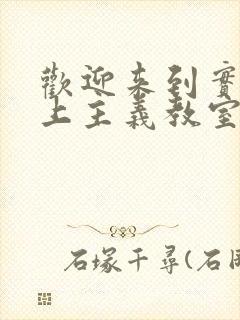 歡迎來到實
上主義教室
石塚千尋(石岡